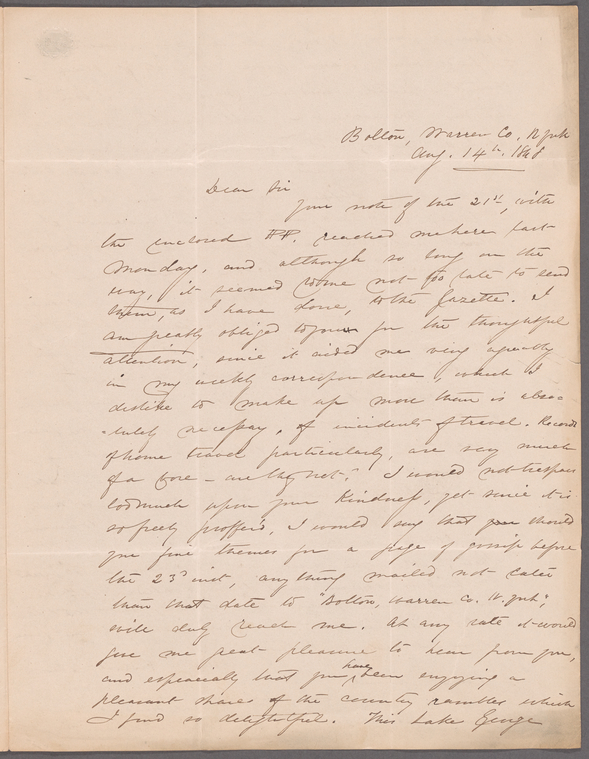 Bolton, Warren Co. N York
Aug. 14th. 1848
Dear Sir
Your note of the 21st, with
the enclosed PP. reached me here last
Monday, and although so long on the
way, it seemed to me not too late to send
them, as I have done, to the Gazette. I
am greatly obliged to you for the thoughtful
attention, since it aided me very agreeably
in my weekly correspondence, which I
dislike to make up more than is abso-
-lutely necessary, of incidents of travel. Records
of home travel particularly, are very much
of a bore – are they not? I would not trespass
too much upon your kindness, yet since it is
so freely proffer'd, I would say that should
you find themes for a page of gossip before
the 23d inst, any thing mailed not later
than that date to "Bolton, Warren Co. N. York",
will duly reach me. At any rate it would
give me great pleasure to hear from you,
and especially that you have been enjoying a
pleasant share of the country rambles which
I find so delightful. This Lake George